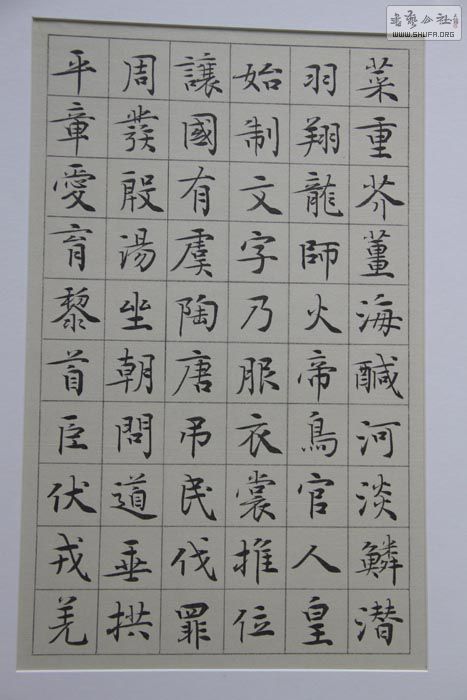 菜重芥薑海醎河淡鱗潛
羽翔龍師火帝鳥官人皇
始制文字乃服衣裳推位
讓國有虞陶唐吊民伐罪
周發殷湯坐朝問道垂拱
平章愛育黎首臣伏戎羌
WWW.SHUFA.ORG